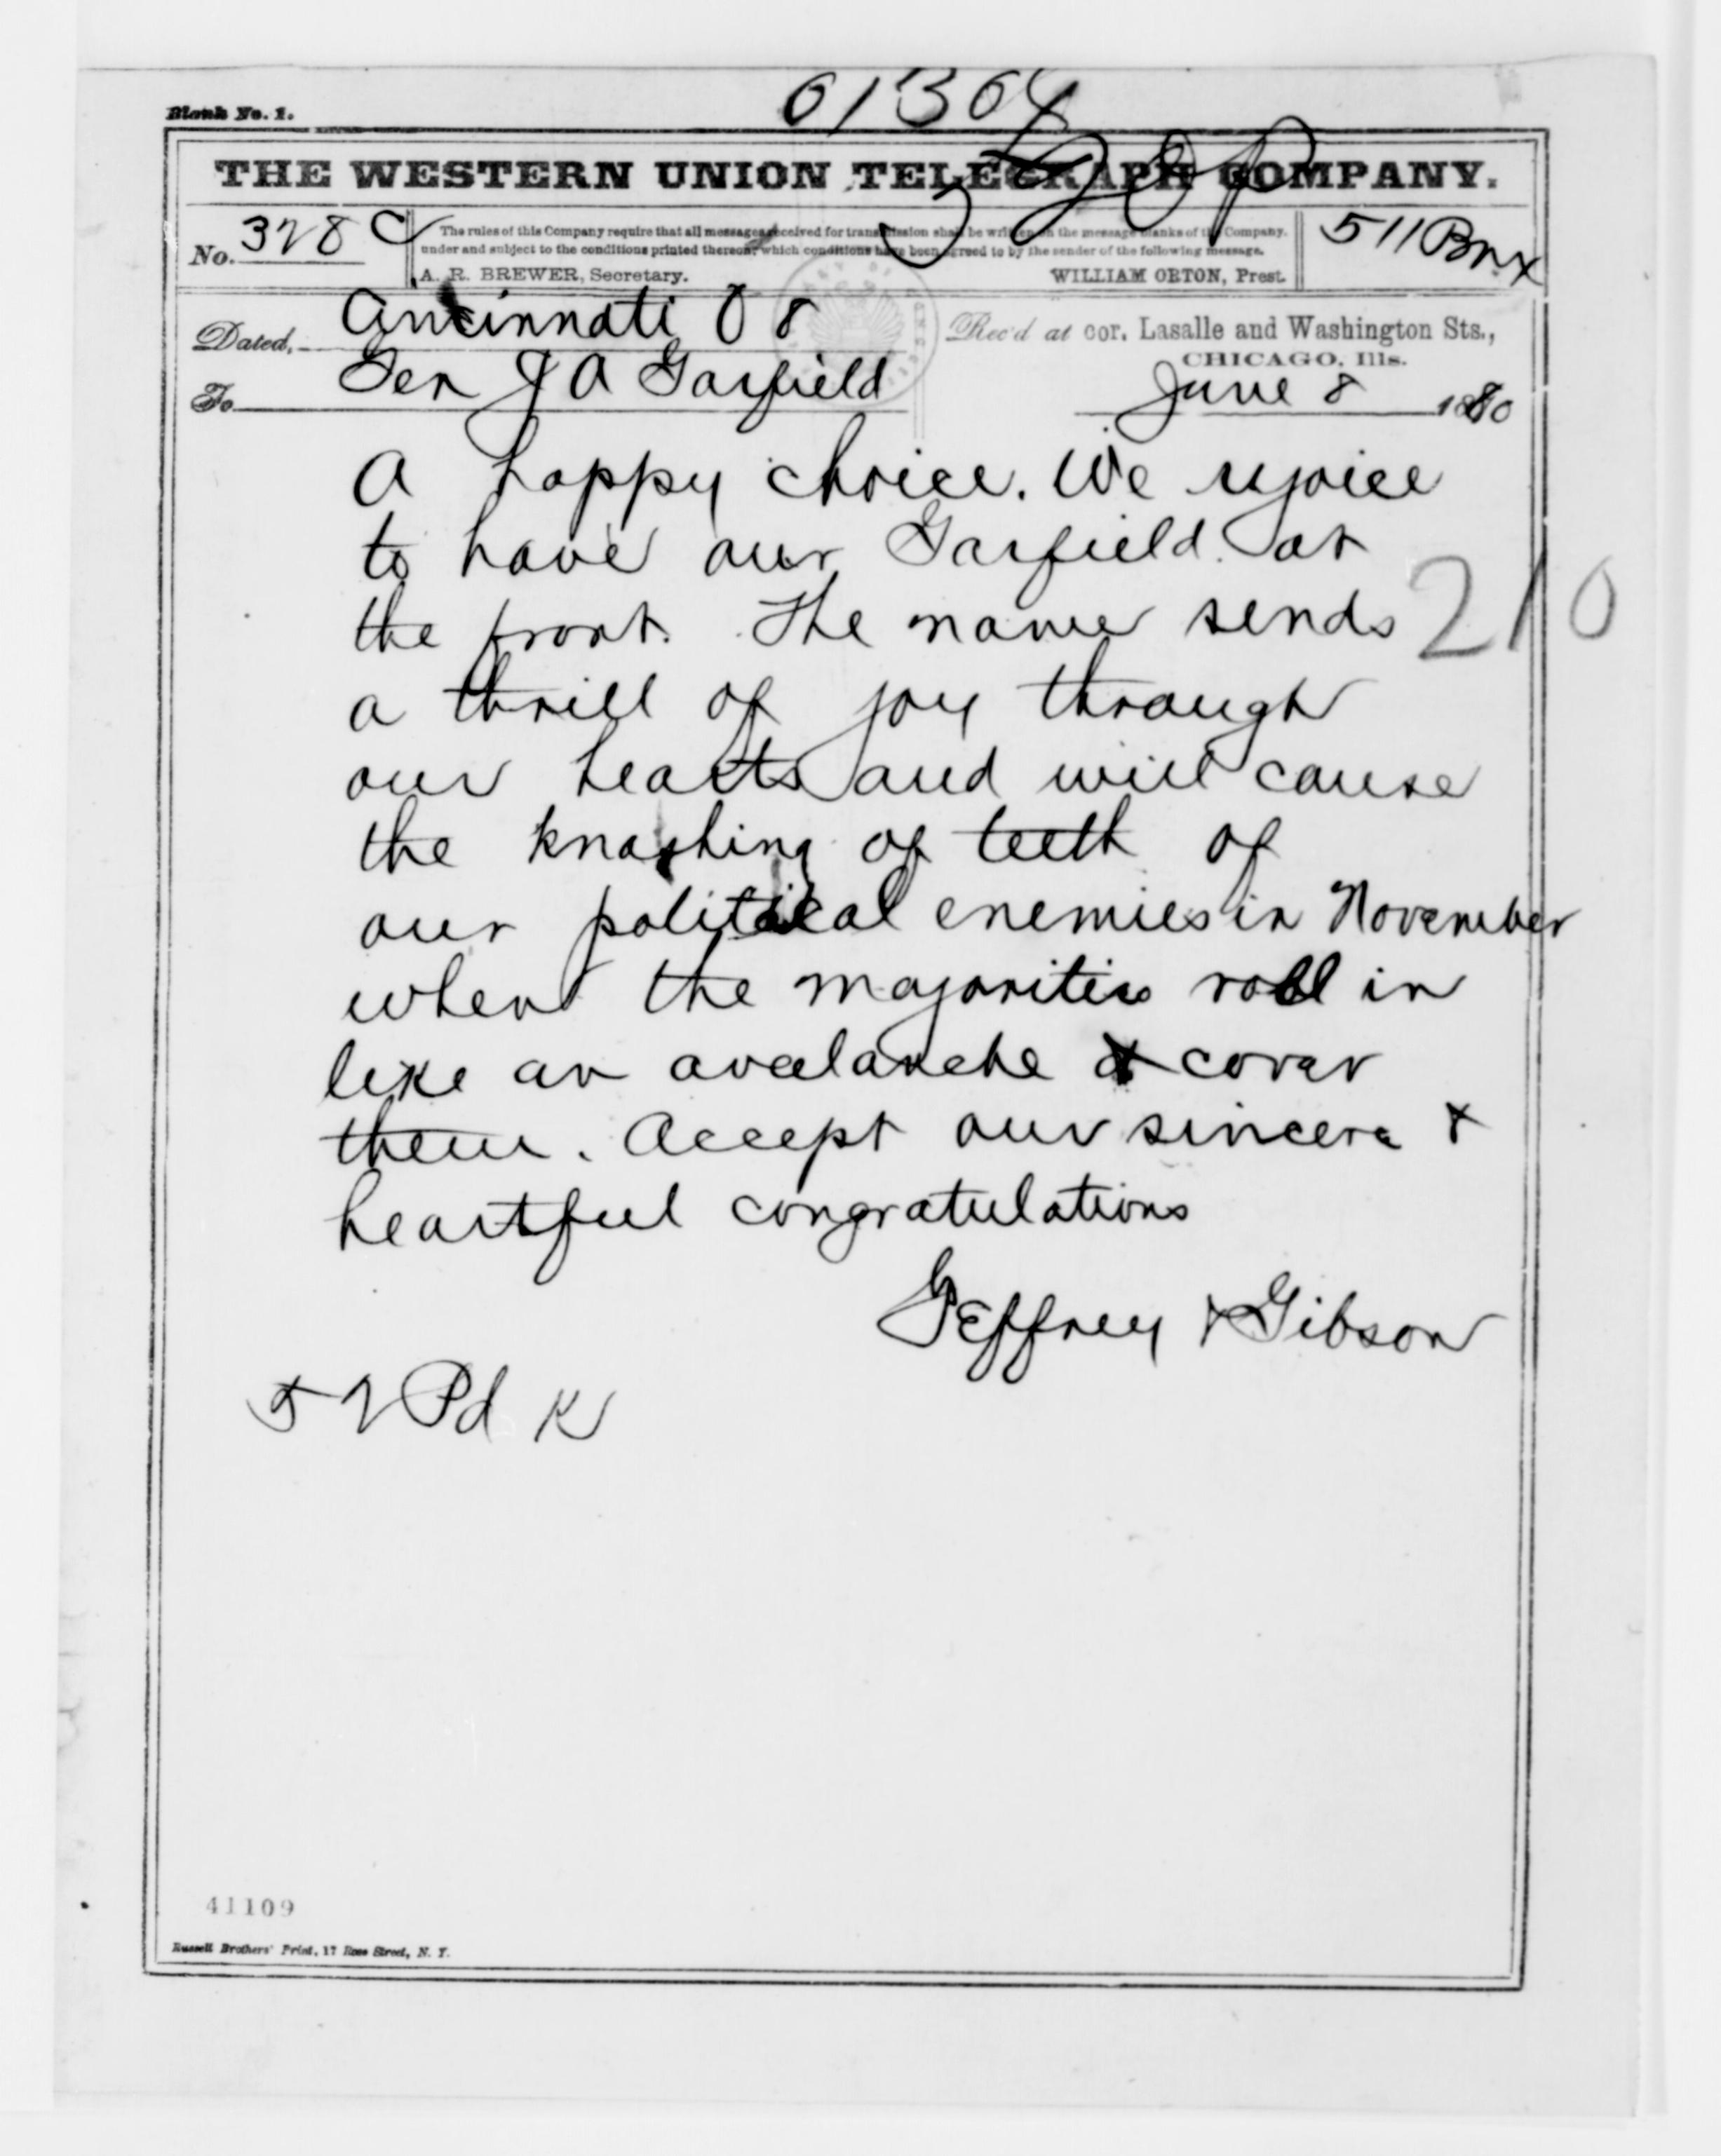 Blank No. 1.
THE WESTERN UNION TELEGRAPH COMPANY.
No. 328 C
The rules of this Company require that all messages received for transmission shall be written on the message blanks of the Company.
under and subject to the conditions printed thereon, which conditions have been agreed to by the sender of the following message.
A. R. BREWER, Secretary. WILLIAM ORTON, Prest.
Dated, Cincinnati O 8
Rec'd at cor. Lasalle and Washington Sts.,
CHICAGO, Ills.
To Gen J A Garfield
June 8 1880
A happy choice. We rejoice
to have our Garfield at
the front. The name sends
210
a thrill of joy through
our hearts and will cause
the knashing of teeth of
our political enemies in November
when the majorities roll in
like an avalanche & cover
them. Accept our sincere &
heartful congratulations
Geffrey & Gibson
52 Pd K
41109
Russell Brothers' Print, 17 Rose Street, N. Y.